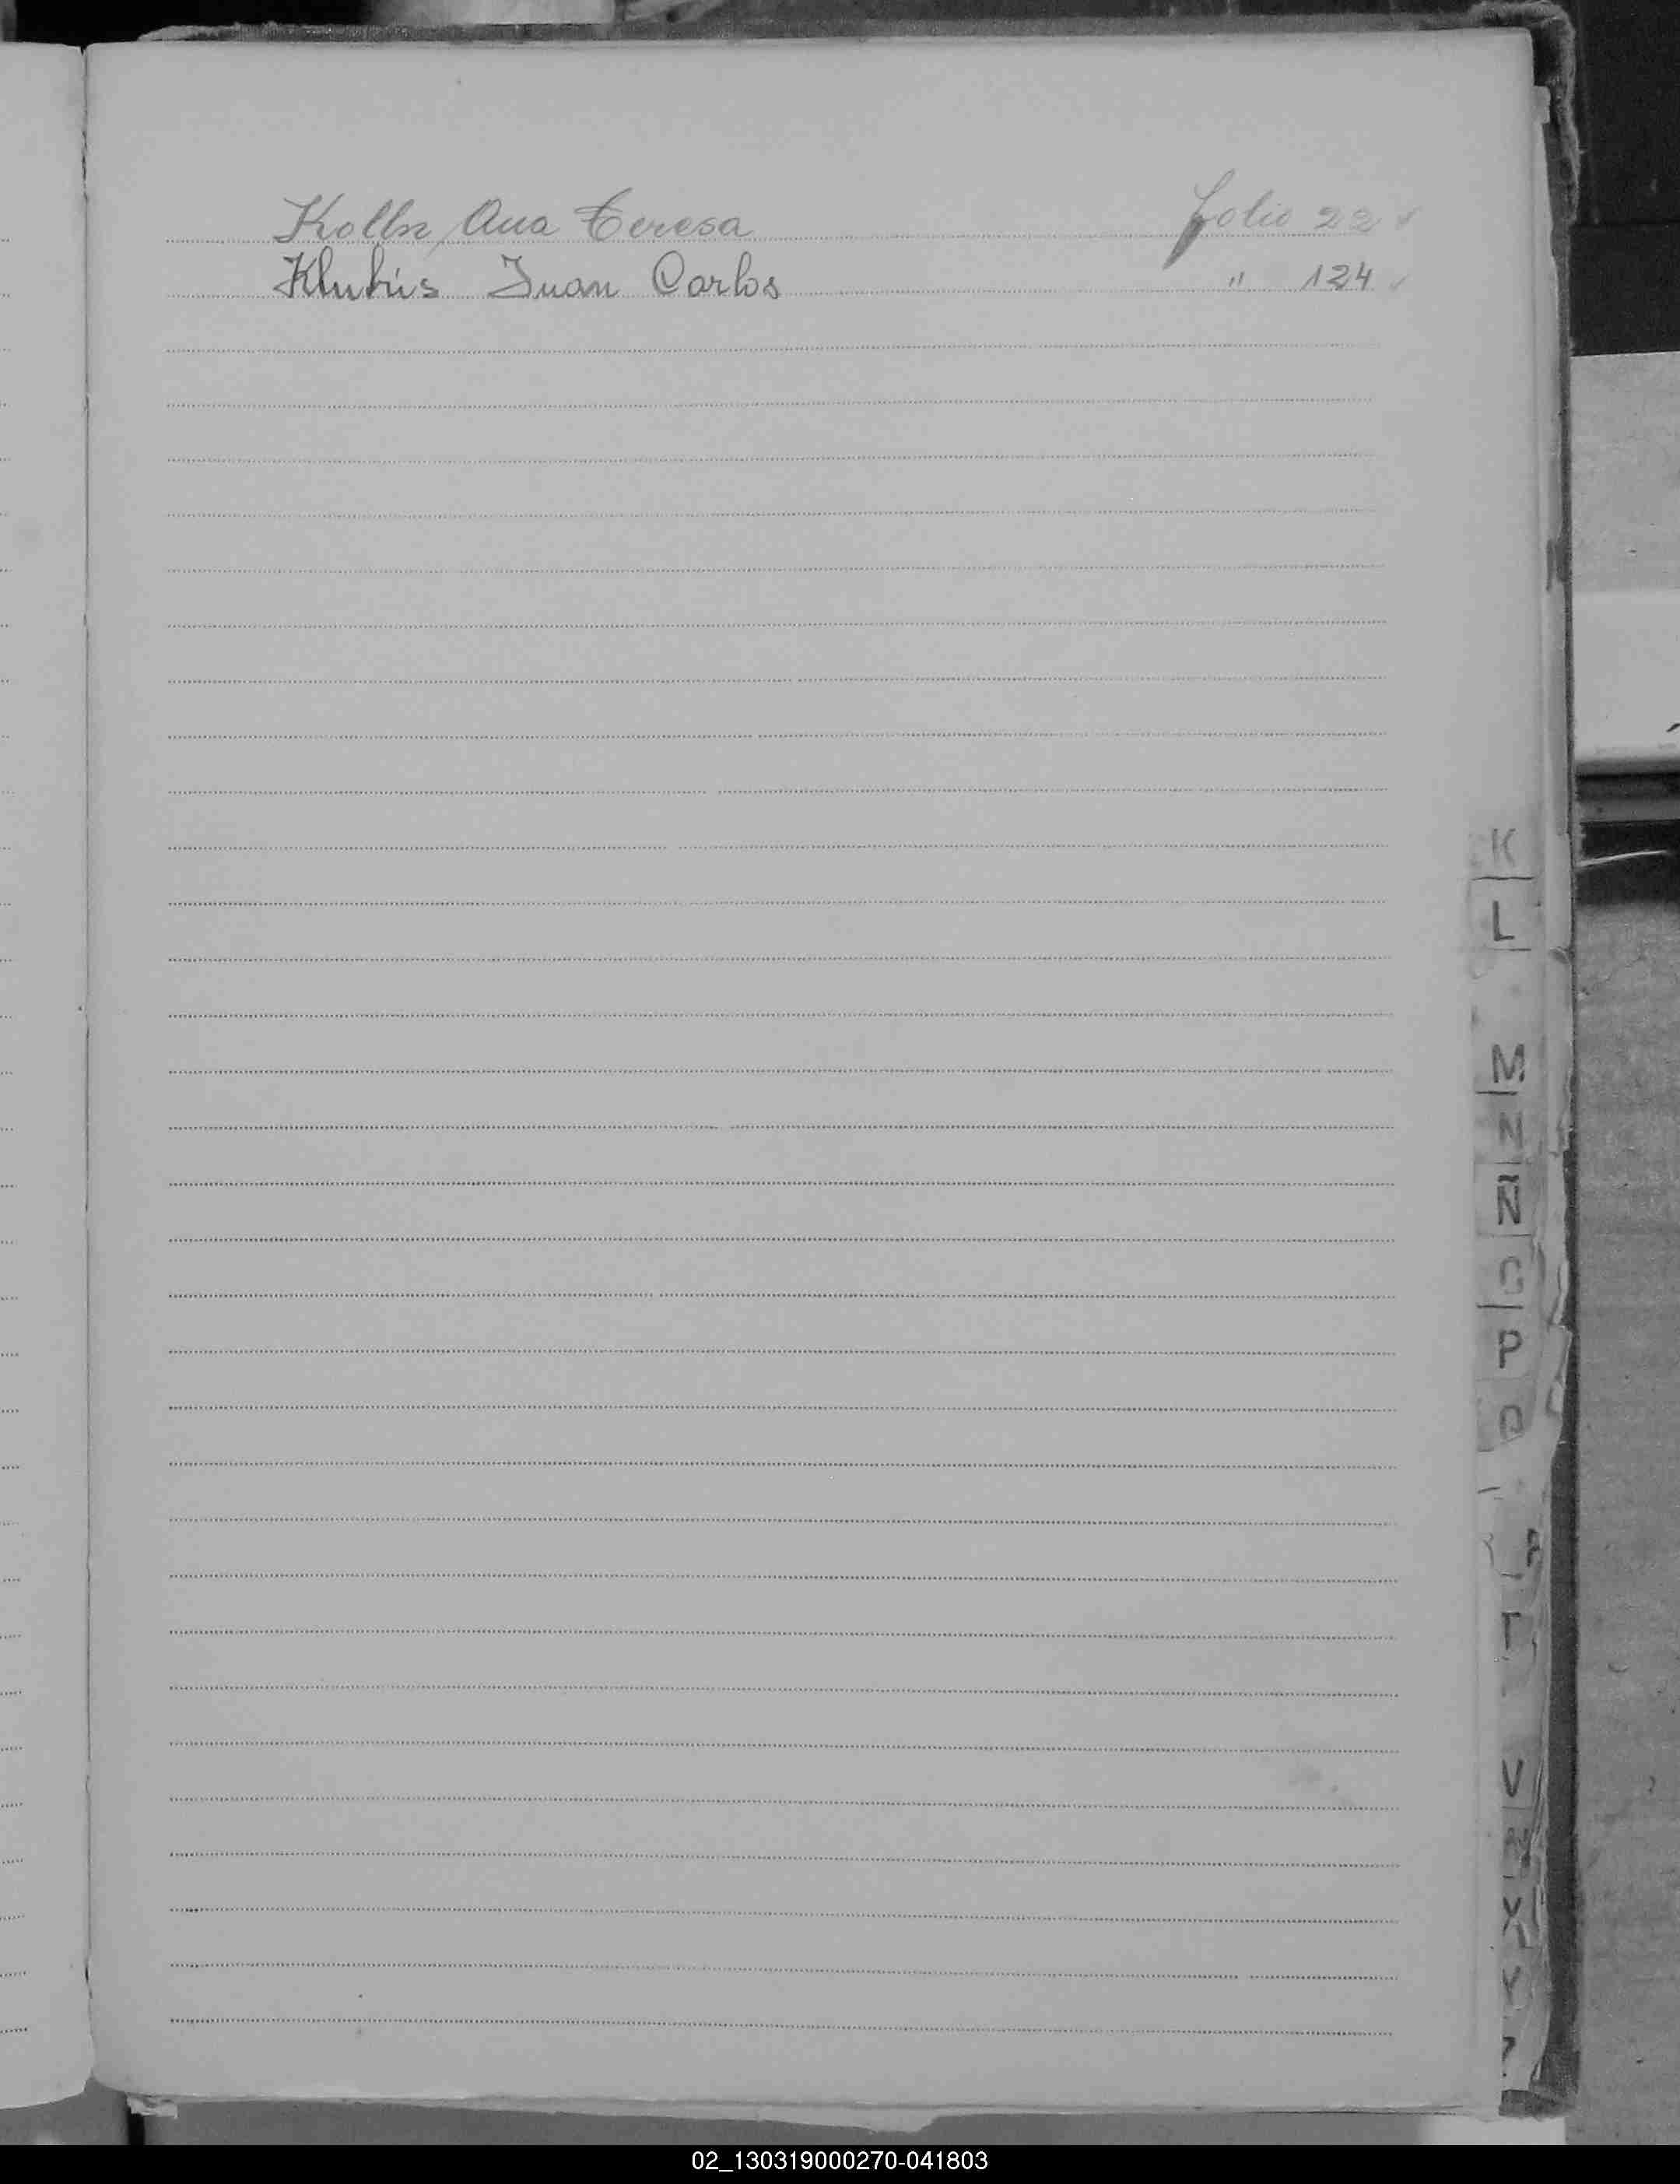 Ana Teresa folio 22 ✓
Juan Carlos " 124 ✓
K
L
M
N
Ñ
O
P
Q
T
V
X
Y
Z
02_130319000270-041803